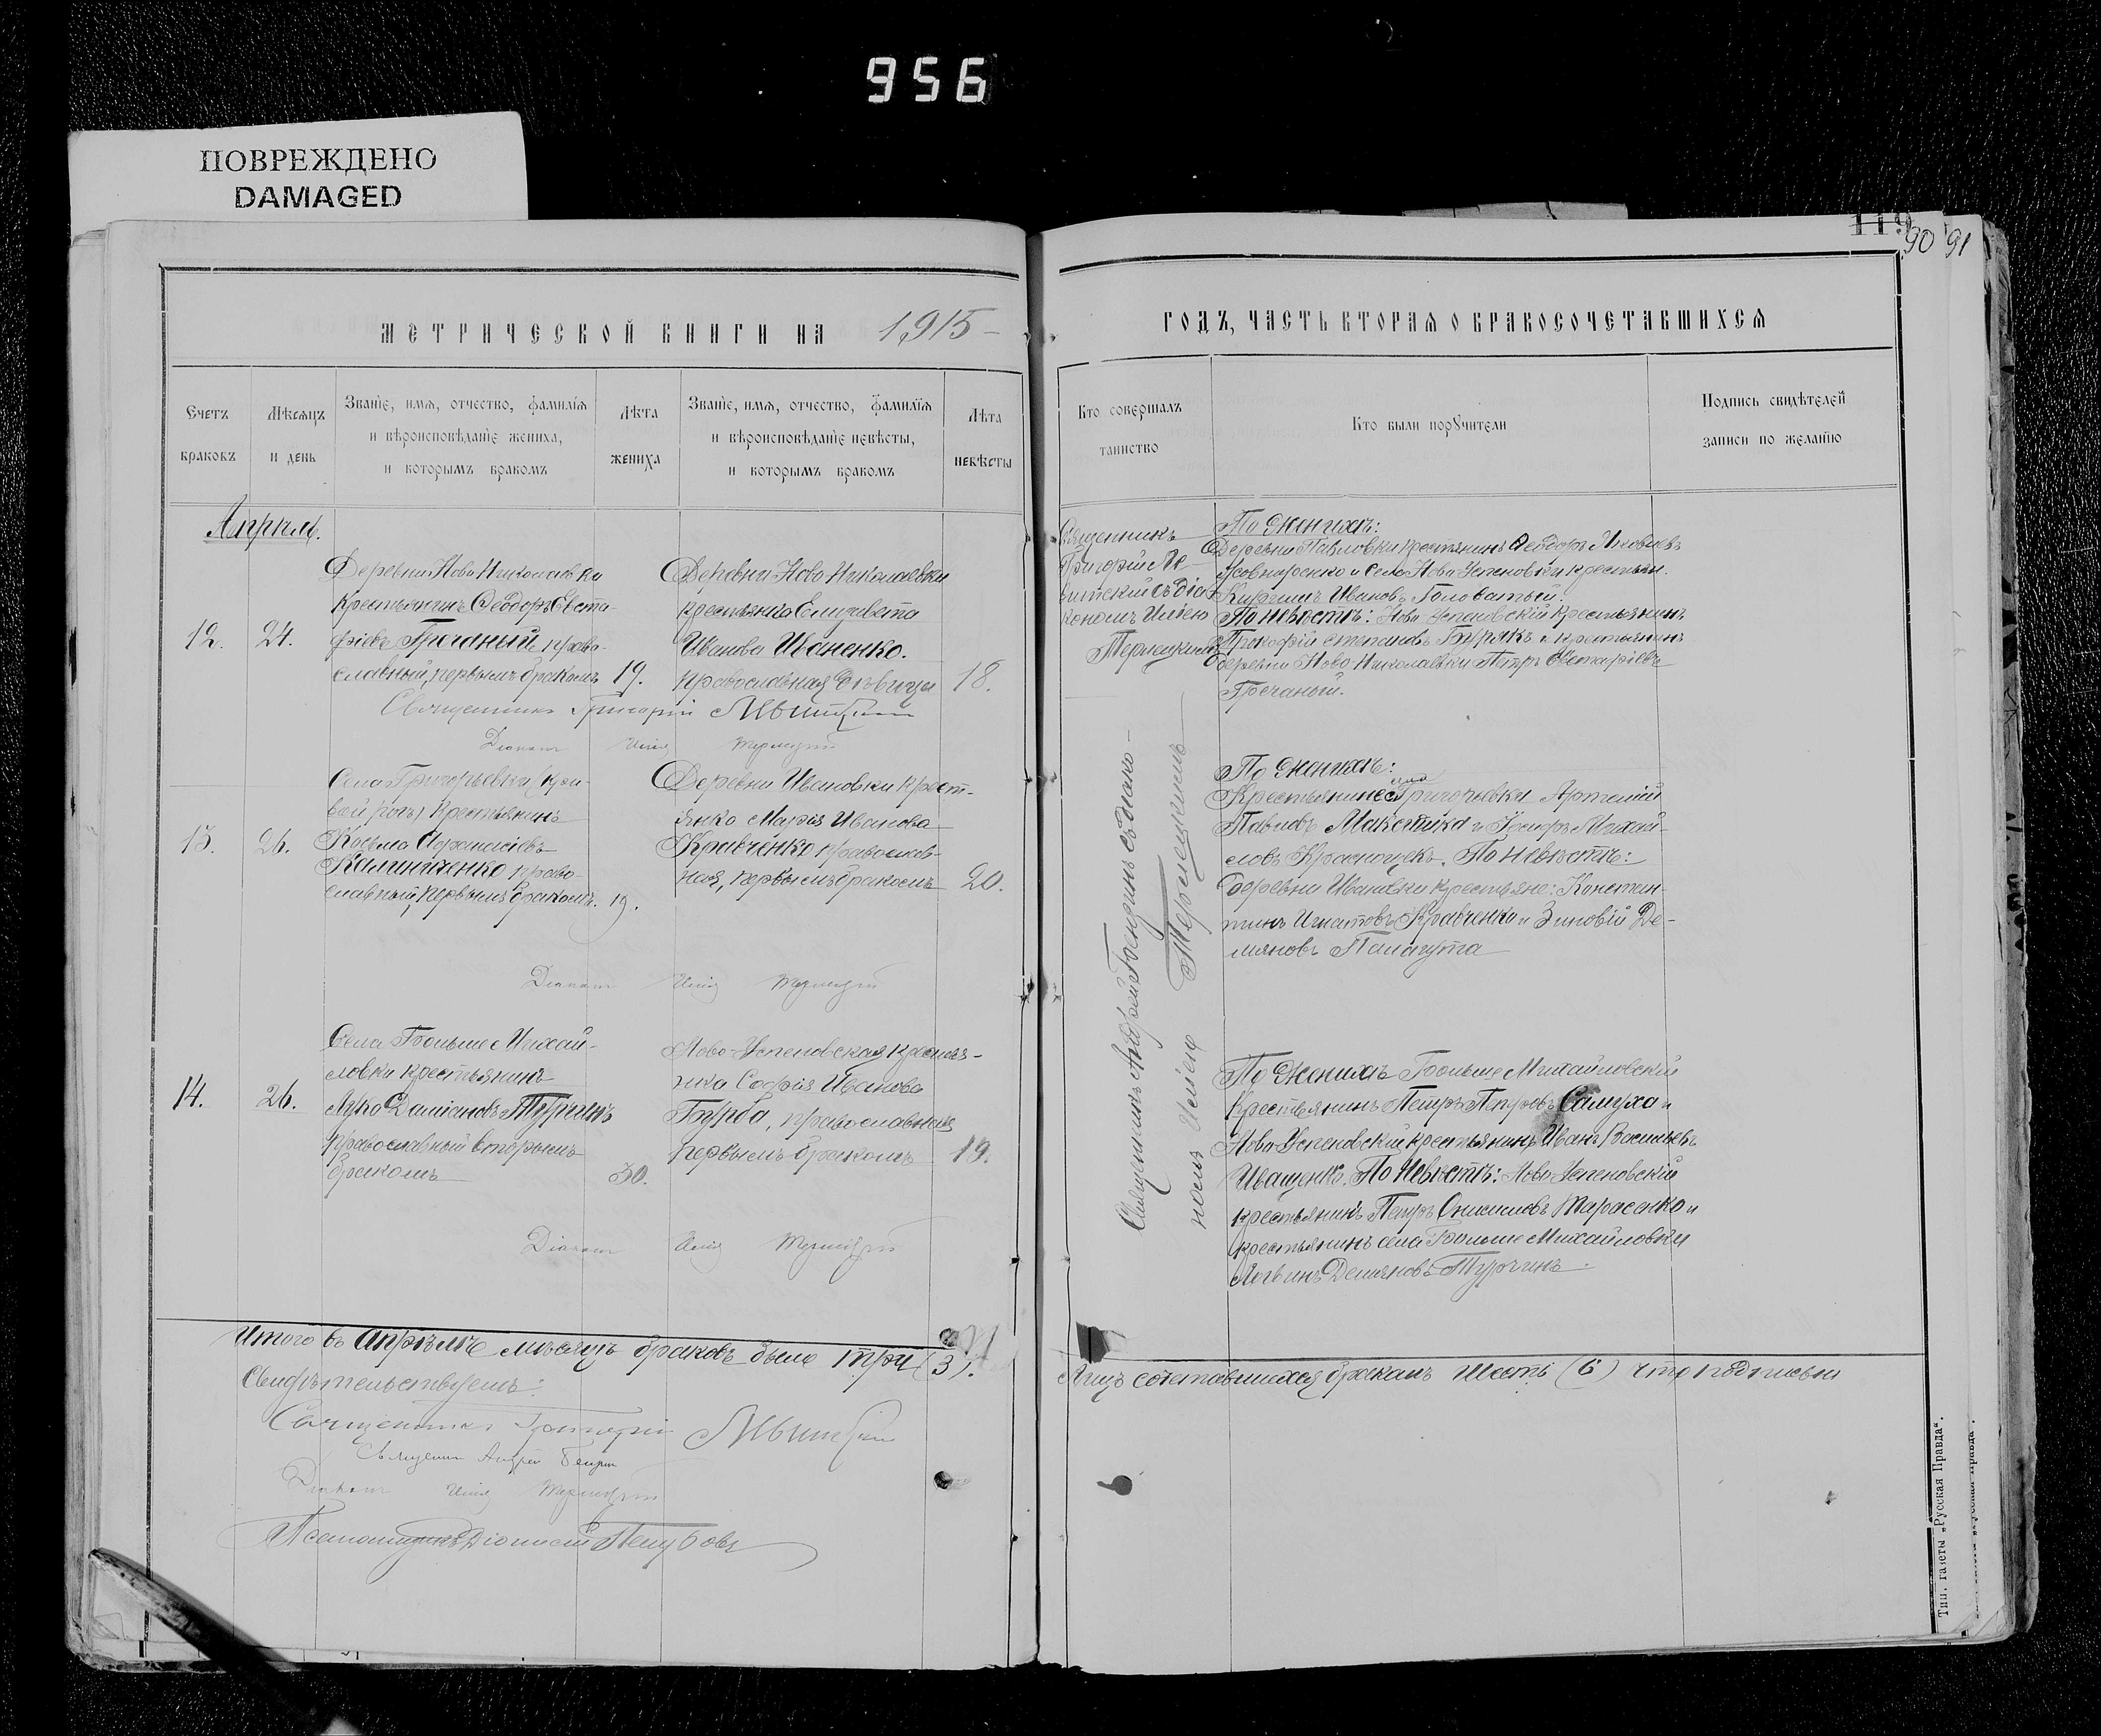 956
ПОВРЕЖДЕНО
DAMAGED
119
90 91
МЕТРИЧЕСКОЙ КНИГИ НА 1915
ГОДЪ, ЧАСТЬ ВТОРАЯ О БРАКОСОЧЕТАВШИХСЯ
Счетъ браковъ
Мѣсяцъ и день
Званіе, имя, отчество, фамилія
и вѣроисповѣданіе жениха,
и которымъ бракомъ
Лѣта жениха
Званіе, имя, отчество, фамилія
и вѣроисповѣданіе невѣсты,
и которымъ бракомъ
Лѣта невѣсты
Кто совершалъ
таинство
Кто были поручители
Подпись свидѣтелей
записи по желанію
Апрѣль.
12.
24.
Деревни Ново Николаевки
крестьянинъ Ѳеодоръ Евста-
фіевъ Гречаный, право-
славный, первымъ бракомъ
19.
Деревни Ново Николаевки
крестьянка Елизавета
Иванова Иваненко.
православная дѣвица
18.
Священникъ Григорій Левитскій
Діаконъ Илія Тернецкій
Священникъ
Григорій Ле-
витскій съ діа-
кономъ Иліею
Тернецкимъ
По женихѣ:
Деревни Павловки крестьянинъ Ѳеодоръ Яковлевъ
и села Ново Успеновки крестьян.
Иванов. Головатый.
По невѣстѣ: Ново Успеновскій крестьянинъ
Прокофій Степановъ Бурякъ и крестьянинъ
деревни Ново-Николаевки Петръ Евстафіевъ
Гречаный.
13.
26.
Села Григорьевки (Кри-
вой рогъ) крестьянинъ
Косьма Аѳанасіевъ
Калиниченко право-
славный, первымъ бракомъ.
19.
Деревни Ивановки крест-
янка Марія Иванова
Кравченко православ-
ная, первымъ бракомъ
20.
Діаконъ Илія Тернецкій
Священникъ Андрей съ діако-
номъ Иліею Тернецкимъ
По женихѣ:
Крестьяне села Григорьевки Артемій
Павловъ Макотика и Іосифъ Михай-
ловъ Краснощекъ. По невѣстѣ:
деревни Ивановки крестьяне: Констан-
тинъ Игнатовъ Кравченко и Зиновій Де-
мяновъ Палагута
14.
26.
Села Больше Михай-
ловки крестьянинъ
Лука Даміановъ Турчинъ
православный вторымъ
бракомъ
30.
Ново-Успеновская крестья-
нка Софія Иванова
Бурба, православная
первымъ бракомъ
19.
Діаконъ Илія Тернецкій
По женихѣ Больше Михайловскій
крестьянинъ Петръ Петровъ Самуха и
Ново-Успеновскій крестьянинъ Иванъ Васильевъ
Иващенко. По невѣстѣ: Ново-Успеновскій
крестьянинъ Петръ Онисимовъ Тарасенко и
крестьянинъ села Больше Михайловки
Логвинъ Демяновъ Турчинъ.
Итого въ Апрѣлѣ мѣсяцѣ браковъ было три (3).
Лицъ сочетавшихся бракомъ шесть (6) что подписью
Свидѣтельствуемъ:
Священникъ Григорій Левитскій
Священникъ Андрей
Діаконъ Илія Тернецкій
Псаломщикъ Діонисій
Тип. газеты „Русская Правда“.